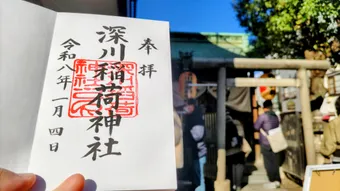 奉拝
深川稲荷神社
令和八年一月四日